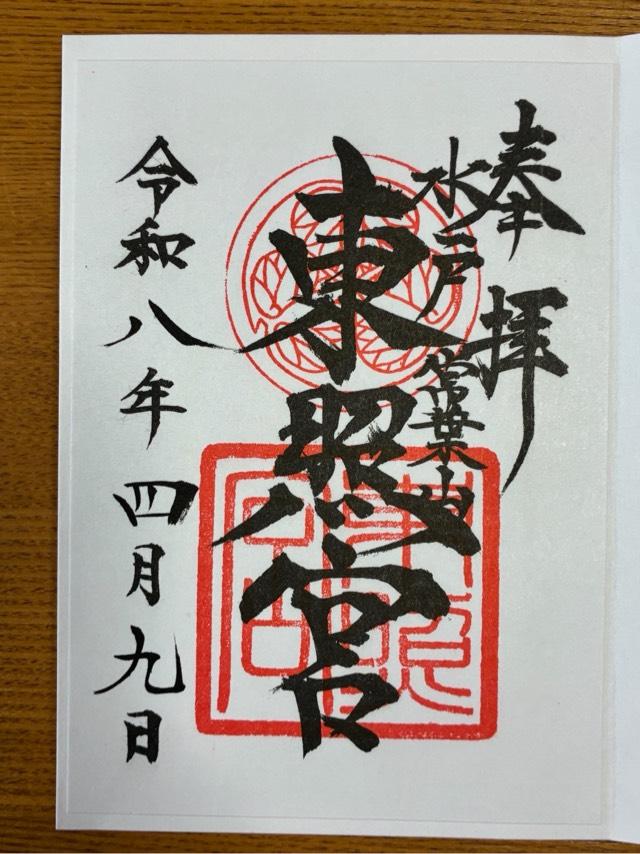 奉拝
水戸
常葉山
東照宮
令和八年四月九日